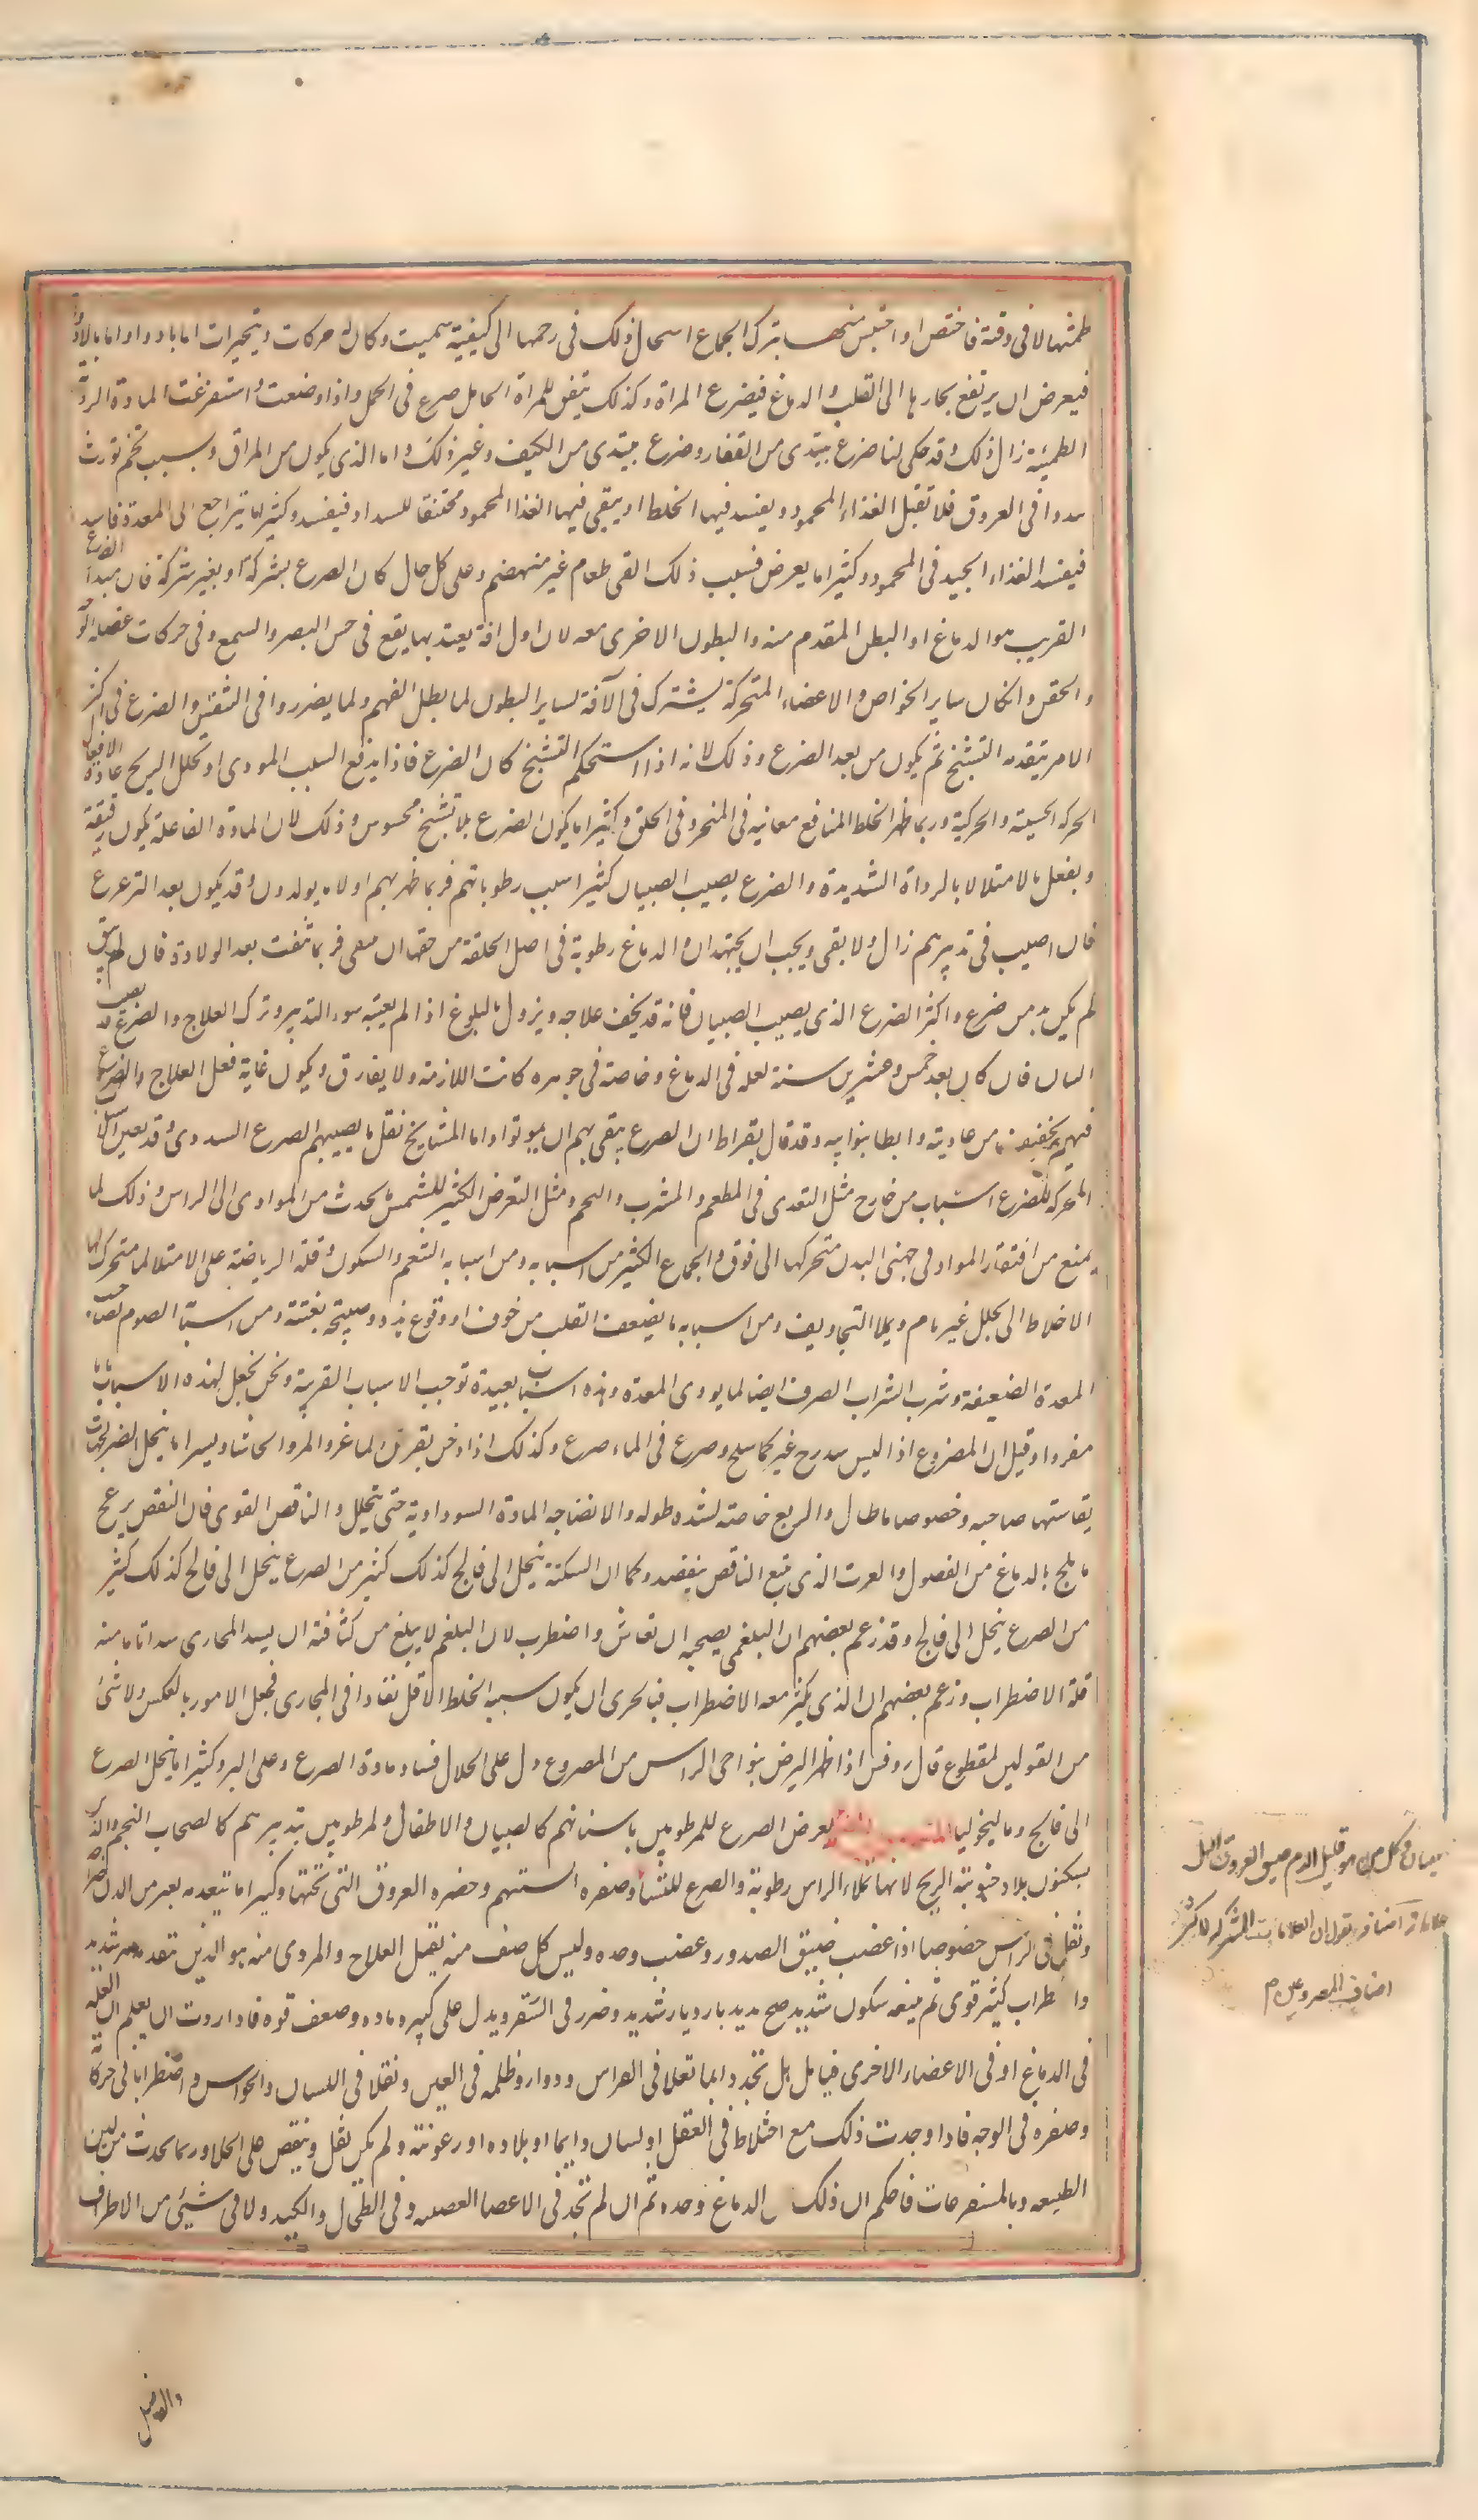 طمثها لا فى وقته فاختص او احتبس منها بترك الجماع استحال ذلك فى رحمها الى كيفية سميت وكان له حركات وتبخيرات اما بادوار او اما بلا ادوار
فيعرض ان يرتفع بخارها الى القلب و الدماغ فيصرع المراة وكذلك يتفق للمراة الحامل صرع فى الحمل واذا وضعت و استفرغت المادة الردية
الطمثية زال ذلك وقد حكى لنا صرع يبتدى من القفار وصرع يبتدى من الكتيف وغير ذلك و اما الذى يكون من المراق و بسبب تخم تورث
سددا فى العروق فلا تقبل الغذاء المحمود ويفسد فيها الخلط او يبقى فيها الغذا المحمود مختنقا للسداد فيفسد وكثيرا ما يتراجع الى المعدة فاسدا
فيفسد الغذاء الجيد فى المحمود وكثيرا ما يعرض فسبب ذلك القى طعام غير منهضم وعلى كل حال كان الصرع بشركة او بغير شركة فان مبدا الصرع
القريب هو الدماغ او البطن المقدم منه والبطون الاخرى معه لان اول افة يعتد بها يقع فى حس البصر والسمع وفى حركات عضل الوجه
و الجفن وانكان ساير الخواص و الاعضاء المتحركة يشترك فى الآفة لساير البطون لما بطل الفهم ولما يضرروا فى التنفس والصرع فى اكثر
الامر يتقدمه التشنج ثم يكون من بعد الصرع وذلك لانه اذا استحكم التشنج كان الصرع فاذا يدفع السبب الموذى او تحلل الريح عادت الافعال
الحركه الحسية والحركية وربما ظهر الخلط المنافع معانيه فى المنخر وفى الحلق وكثيرا ما يكون الصرع بلا تشنج محسوس وذلك لان المادة الفاعلة يكون رقيقة
و يفعل بالامتلا لا بالرداة الشديدة والصرع يصيب الصبيان كثيرا بسبب رطوباتهم فربما ظهر بهم اول ما يولدون وقد يكون بعد الترعرع
فان اصيب فى تدبيرهم زال ولا بقى ويجب ان يجتهد ان والدماغ رطوبة فى اصل الخلقة من حقها ان ينقى فربما نقيت بعد الولادة فان لم ينق
لم يكن بد من صرع واكثر الصرع الذى يصيب الصبيان فانه قد يخف علاجه ويزول بالبلوغ اذا لم يعنه سوء التدبير وترك العلاج والصرع قد يصيب
الشبان فان كان بعد خمس وعشرين سنة لعله فى الدماغ وخاصة فى جوهره كانت اللازمة ولا يفارق ويكون غاية فعل العلاج
فيهم تخفيفه من عاديته وابطا بنوايبه وقد قال بقراط ان الصرع يبقى بهم ان يموتوا واما المشايخ فقل ما يصيبهم الصرع السددى وقد يعين
المحركة للصرع اسباب من خارج مثل التعدى فى المطعم والمشرب والتخم ومثل التعرض الكثير للشمس ما يحدث من المواد الى الراس وذلك لما
يمنع من انتشار المواد فى جهتى البدن متحركها الى فوق والجماع الكثير من اسبابه ومن اسبابه التنعم والسكون وقلة الرياضة على الامتلا لما متحرك لها
الاخلاط الى تحلل غير تام ويملا التجاويف ومن اسبابه ما يضعف القلب من خوف او وقوع هدة وصيحة بغتة ومن اسبابه الصوم لصاحب
المعدة الضعيفة وشرب الشراب الصرف ايضا لما يوذى المعدة وهذه اسباب بعيدة توجب الاسباب القريبة ونحن نجعل لهذه الاسباب بابا
مفردا وقيل ان المصروع اذا البس مدرج غير كما سلح وصرع فى الماء صرع وكذلك اذا دخن بقرن الماعز والمر والحاشا ويسيرا ما ينحل الصرع بحميات
يقاسيها صاحبه وخصوصا ما طال والربع خاصة لشدة طوله والانضاجه المادة السوداوية حتى يتحلل والنافض القوى فان النفض يزعج
ما يلج بالدماغ من الفضول والعرق الذى يتبع النافض ينفضه وكما ان السكتة ينحل الى فالج كذلك كثير من الصرع ينحل الى فالج كذلك كثير
من الصرع ينحل الى فالج وقد زعم بعضهم ان البلغمى يصحبه ارتعاش واضطرب لان البلغم لا يبلغ من كثافته ان يسد المجارى سدا تاما منه
قلة الاضطراب وزعم بعضهم ان الذى يكثر معه الاضطراب فبالحرى ان يكون سببه الخلط الاقل نفادا فى المجارى فجعل الامور بالعكس ولا شئ
من القولين لمقطوع قال روفس اذا ظهر البرص بنواحى الراس من المصروع دل على انحلال فساد مادة الصرع وعلى البرو وكثيرا ما ينحل الصرع
الى فالج وماليخوليا يعرض الصرع للمرطوبين باسنانهم كالصبيان والاطفال ولمرطوبين بتدبيرهم كاصحاب التخم والذين
يسكنون بلاد جنوبية الريح لانها تملاء الراس رطوبة والصرع للنشا وصفره السنتهم وخضره العروق التى تحتها وكثيرا ما يتقدمه
وثقل فى الراس خصوصا اذا غضب ضيق الصدور وعضب وحده وليس كل صنف منه يقبل العلاج والمردى منه هو الذين تتقدمه شديد
واضطراب كثير قوى ثم يتبعه سكون شديد مديد بارد يار شديد وضرر فى التنفس ويدل على كثره ماده وضعف قوه فاذا اردت ان يعلم ان العله
فى الدماغ او فى الاعضاء الاخرى فتامل هل تجد دايما ثقلا فى الراس ودوار وظلمه فى العين وثقلا فى اللسان والحواس و اضطرابا فى حركاته
وصفره فى الوجه فاذا وجدت ذلك مع اختلاط فى العقل او لسان دايما او بلاده او رعونته ولم يكن يقل وينقص على الخلا وربما يحدث من لين
الطبيعه وبالمستفرغات فاحكم ان ذلك الدماغ وحده ثم ان لم تجد فى الاعضا العصبيه وفى الطحال والكبد ولا فى شيئ من الاطراف
من هو قليل الدم ضيق العروق
يقول ان العلامات المشتركه لاكثر
اصناف المصروعين م